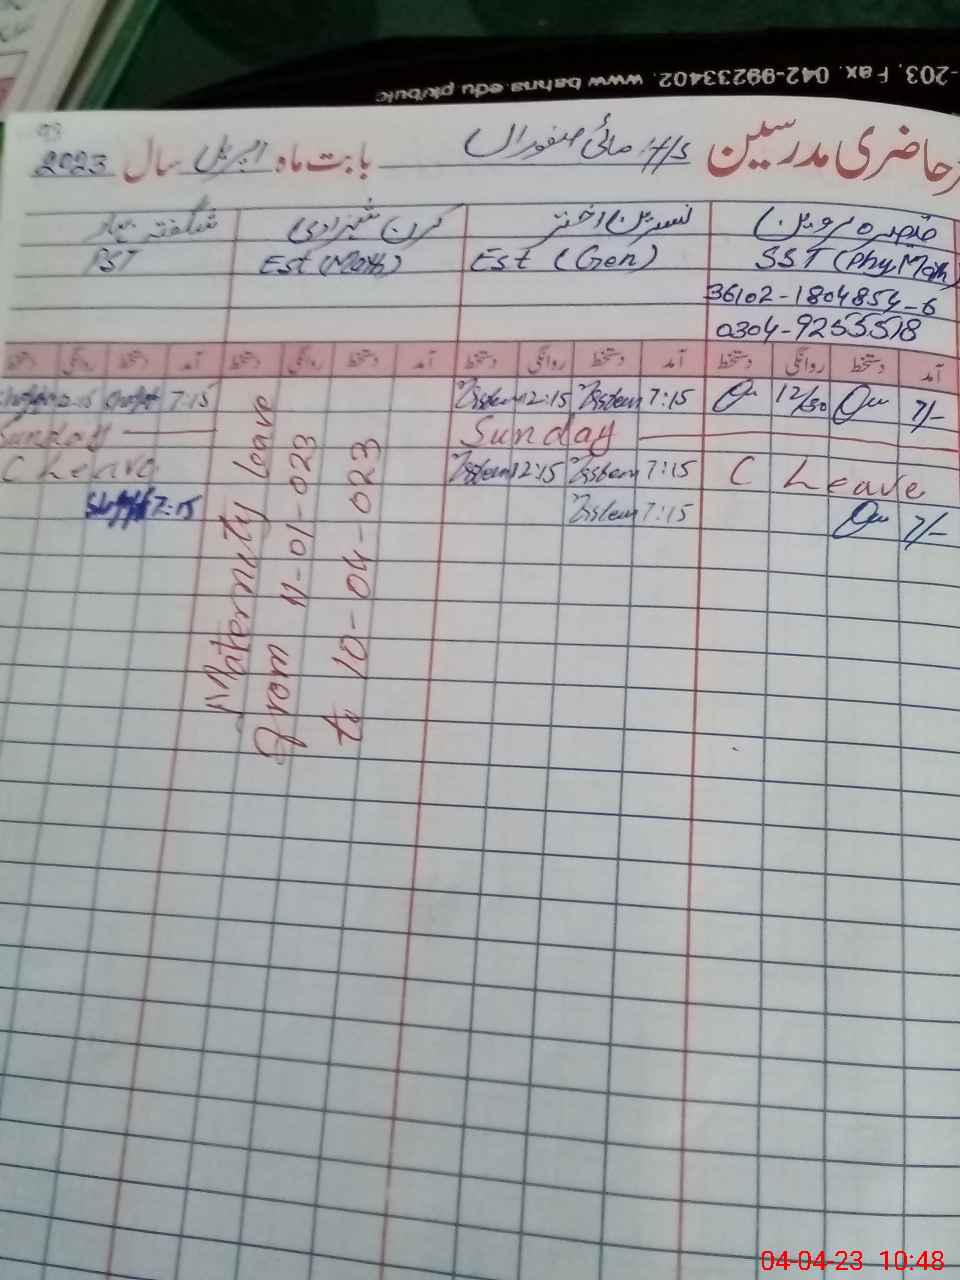 -203. Fax. 042-99233402. www.bahna.edu.pk/bulc
حاضری مدرسین H/S مائی صفوراں بابت ماہ اپریل سال 2023
93
نسرین اختر کرن شہزادی شگفتہ
SST (Phy Math) Est (Gen) Est (Math) PST
36102-1804854-6
0304-9255518
آمد دستخط روانگی دستخط آمد دستخط روانگی دستخط آمد دستخط روانگی دستخط آمد دستخط روانگی دستخط
7/- 12/50 7:15 12:15 7:15
Sunday Sunday
C Leave 7:15 12:15 C Leave
7/- 7:15 7:15
Maternity Leave
From 11-01-023
to 10-04-023
04-04-23 10:48